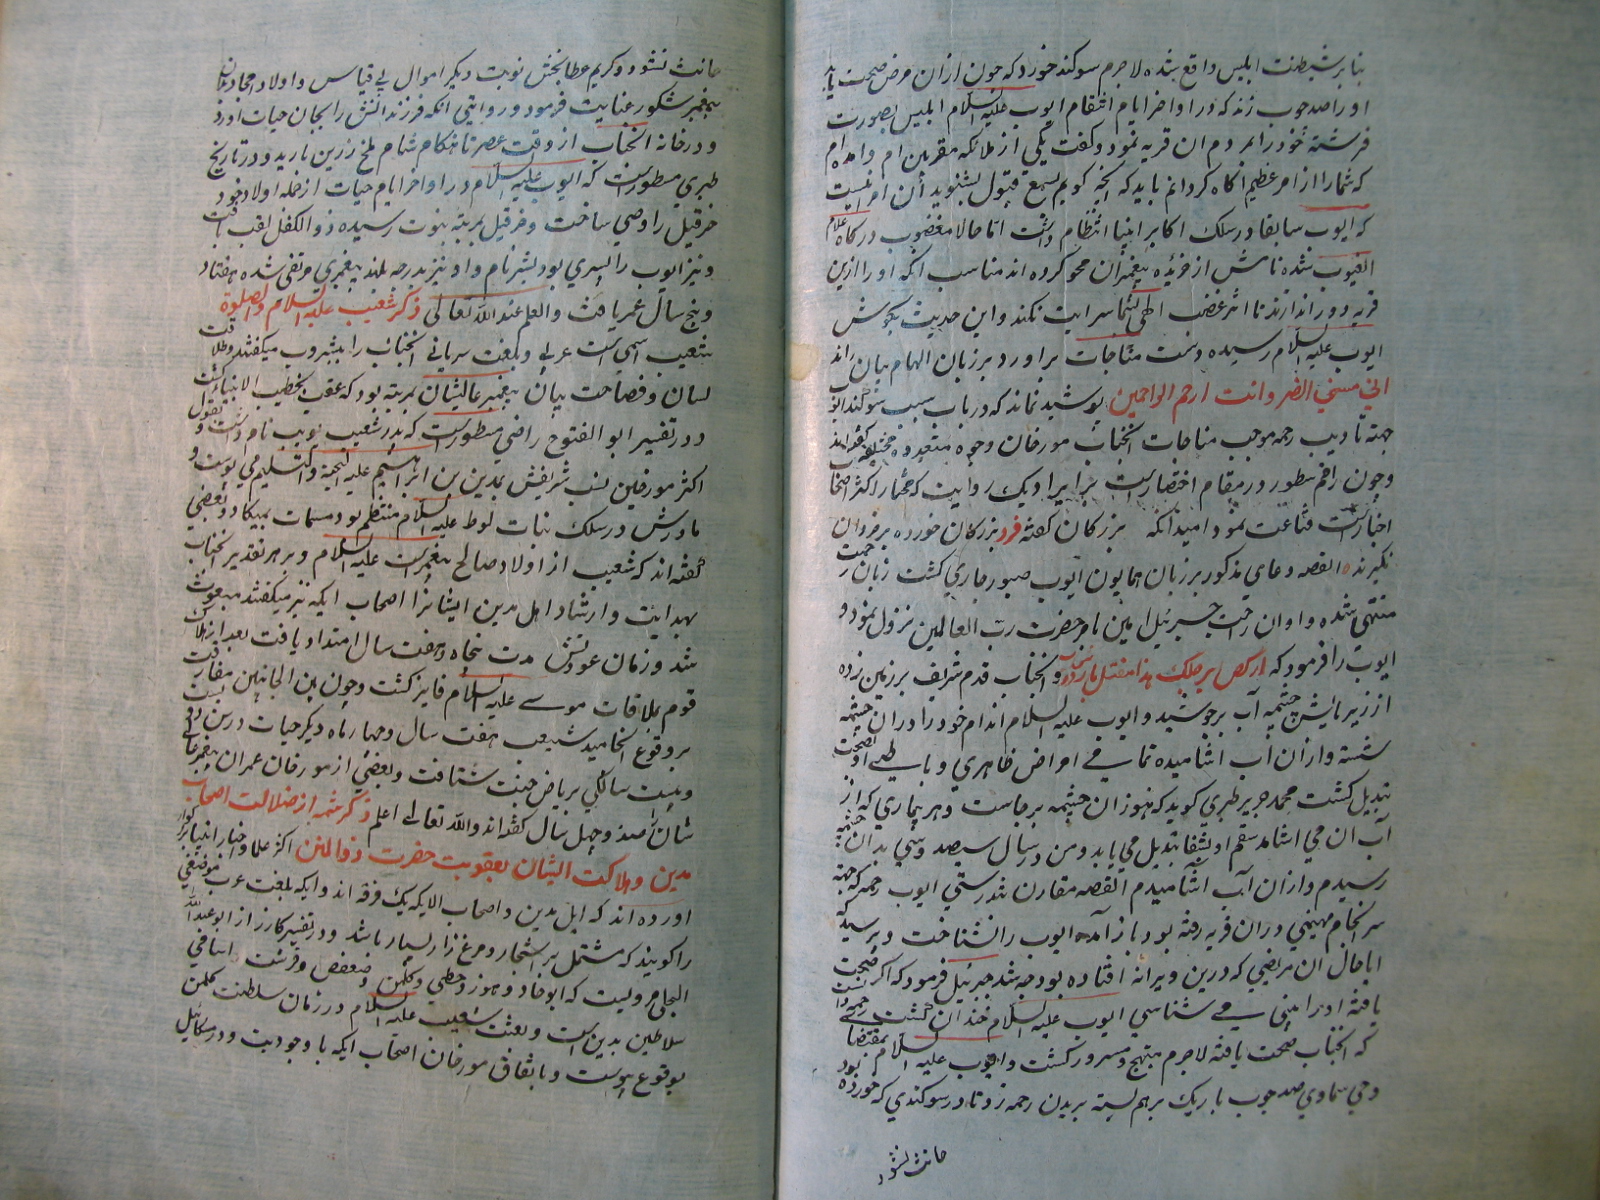 بنابر شیطنت ابلیس واقع شده لاجرم سوکند خورد که چون ازان مرض صحت یابد
او را صد چوب زند که در اواخر ایام انتقام ایوب علیه السلام ابلیس بصورت
فرشته خود را بمردم ان قریه نمود و کفت یکی از ملائکه مقربین ام وامده ام
که شما را از امر عظیم اکاه کردانم باید که انچه کویم بسمع قبول بشنوید ان امر اینست
که ایوب سابقا در سلک اکابر انبیا انتظام داشت اما حالا مغضوب درکاه علام
الغیوب شده نامش از جریده پیغمبران محو کرده اند مناسب انکه او را ازین
قریه دور اندازند تا اثر غضب الهی بشما سرایت نکند و این حدیث بکوش
ایوب علیه السلام رسیده دست مناجات براورد بر زبان الهام بیان راند
انی مسنی الضر وانت ارحم الراحمین پوشیده نماند که در باب سبب سوکند ایوب
جهته تادیب رحمه موجب مناجات انجناب مورخان وجوه متعدده مختلفه کفته اند
و چون راقم سطور در مقام اختصارست بر ایراد یک روایت که مختار اکثر
اخبارست قناعت نمود امید انکه بزرکان کفته فرد بزرکان خورده بر خردان
نکیرند القصه دعای مذکور بر زبان همایون ایوب صبور جاری کشت زمان زحمت
منتهی شده و اوان راحت جبرئیل امین بامر حضرت رب العالمین نزول نمود و
ایوب را فرمود که ارکض برجلک هذا مغتسل بارد وانجناب قدم شریف بر زمین زده
از زیر پایش چشمه آب برجوشید و ایوب علیه السلام اندام خود را دران چشمه
شسته و ازان اب اشامیده تمامی امراض ظاهری و باطنی او بصحت
تبدیل کشت محمد جریر طبری کوید که هنوز ان چشمه برجاست و هر بیماری که از
آب ان می اشامد سقم او بشفا تبدیل می یابد و من در سال سیصد و سی بدان چشمه
رسیدم و ازان آب اشامیدم القصه مقارن تندرستی ایوب رحمه که جهته
سرانجام مهمی دران قریه رفته بود باز آمده ایوب را نشناخت و پرسید که
ایا حال ان مریضی که درین ویرانه افتاده بود چه شد جبرئیل فرمود که اکر صحت
یافته او را ببینی می شناسی ایوب علیه السلام خندان کشت رحمه دانست
که انجناب صحت یافته لاجرم مبتهج و مسرور کشت و ایوب علیه السلام بمقتضای
وحی سماوی صد چوب باریک برهم بسته بر بدن رحمه زد تا در سوکندی که خورده بود
حانث نشود
حانث نشود و کریم عطابخش نوبت دیکر اموال بی قیاس و اولاد امجاد بان
پیغمبر شکور عنایت فرمود و روایتی انکه فرزندانش را بجان حیات اورد
و در خانه انجناب از وقت عصر تا هنکام شام ملخ زرین بارید و در تاریخ
طبری مسطورست که ایوب علیه السلام در اواخر ایام حیات از جمله اولاد خود
حزقیل را وصی ساخت و حزقیل بمرتبه نبوت رسیده ذوالکفل لقب یافت
و نیز ایوب را پسری بود بشر نام و او نیز بدرجه بلند پیغمبری مرتقی شده هفتاد
و پنج سال عمر یافت والعلم عند الله تعالی ذکر شعیب علیه السلام والصلوة
شعیب اسمیست عربی و بلغت سریانی انجناب را یثروب میکفتند و طلاقت
لسان و فصاحت بیان پیغمبر عالیشان بمرتبه بود که ملقب بخطیب الانبیا کشت
و در تفسیر ابو الفتوح رازی مسطورست که پدر شعیب یوبب نام داشت و بقول
اکثر مورخین نسب شریفش بمدین بن ابرهیم علیه التحیة والتسلیم می پیوست و
مادرش در سلک بنات لوط علیه السلام منتظم بود مسمات بمیکاد و بعضی
کفته اند که شعیب از اولاد صالح پیغمبرست علیه السلام و بر هر تقدیر انجناب
بهدایت و ارشاد اهل مدین ایشانرا اصحاب ایکه نیز میکفتند مبعوث
شد و زمان دعوتش مدت پنجاه و هفت سال امتداد یافت بعد از هلاک
قوم بملاقات موسی علیه السلام فایز کشت و چون بین الجانبین مفارقت
بر وقوع انجامید شعیب هفت سال و چهار ماه دیکر حیات در سن دویست
و بیست سالکی بریاض جنت شتافت و بعضی از مورخان عمر ان پیغمبر عالی
شان را صد و چهل سال کفته اند والله تعالی اعلم ذکر شمه از ضلالت اصحاب
مدین و هلاکت ایشان بعقوبت حضرت ذوالمنن اکثر علما و اخبار انبیا بزبان
اورده اند که اهل مدین و اصحاب الایکه یک فرقه اند و ایکه بلغت عرب موضعی
را کویند که مشتمل بر اشجار و مرغزار بسیار باشد و در تفسیر کازر از ابو عبدالله
البجلی مرویست که ابوجاد و هوز و حطی و کلمن و سعفص و قرشت اسامی
سلاطین مدین است و بعثت شعیب علیه السلام در زمان سلطنت کلمن
بوقوع پیوست و باتفاق مورخان اصحاب ایکه با وجود